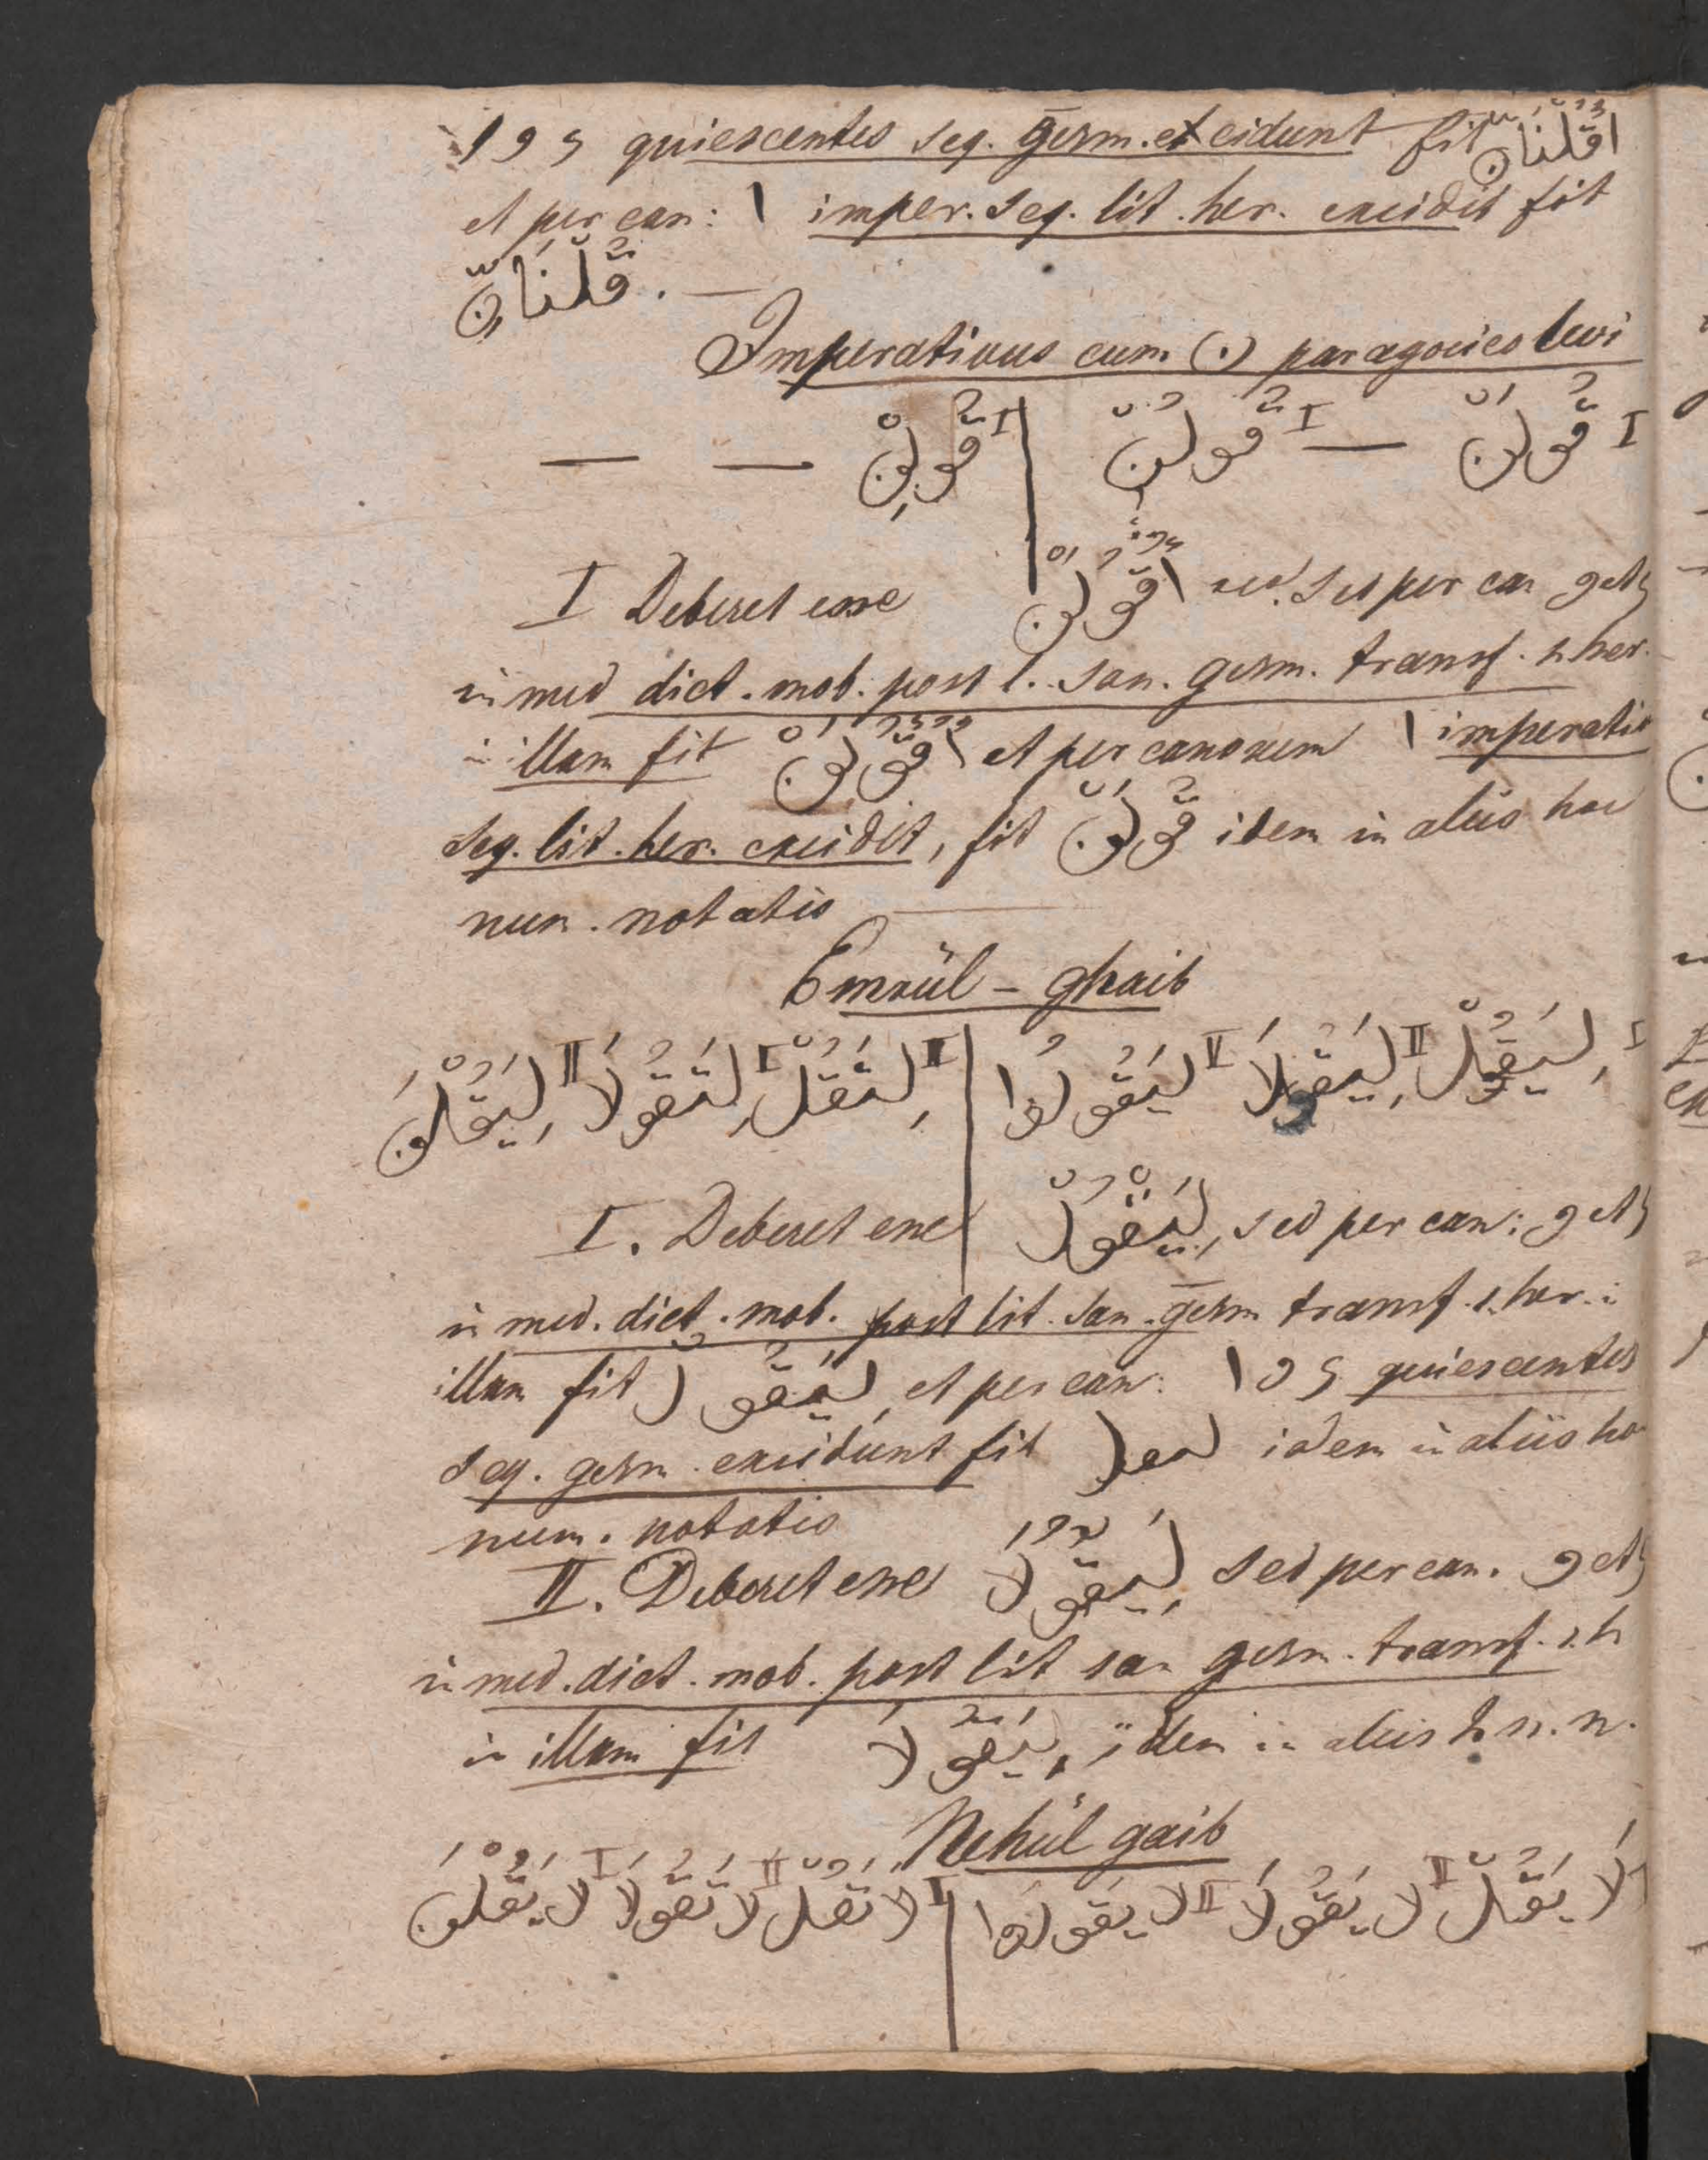 ا و ي quiescentes seq. gesm. excidunt fit اُقْلْنَانِّ
et per can: ا imper. seq. lit. her. excidit fit
قُلْنَانِّ . —
Imperativus cum (ن) paragogico levi
I قُولَنْ — I قُولُنْ | I قُولِنْ — —
I Deberet esse اُقْوُلَنْ sed per can و et ي
in med dict. mob. post l. san. gesm. transf. s. her.
in illam fit اُقُوْلَنْ et per canonem ا imperativ
seq. lit. her. excidit, fit قُولَنْ idem in aliis hoc
num. notatis
Emrül - ghaib
I لِيَقُلْ II لِيَقُولَا II لِيَقُولُوا | I لِتَقُلْ II لِتَقُولَا I لِيَقُلْنَ
I. Deberet esse لِيَقْوُلْ sed per can: و et ي
in med. dict. mob. post lit. san. gesm transf. s. her. in
illam fit لِيَقُولْ et per can: ا و ي quiescentes
seq. gesm. excidunt fit لىقل idem in aliis hoc
num. notatis
II. Deberet esse لِيَقْوُلَا sed per can. و et ي
in med. dict. mob. post lit san gesm. transf. s. h
in illam fit لِيَقُولَا idem in aliis h. n. n.
Nehül gaib
لَا يَقُلْ II لا يَقُولَا II لا يَقُولُوا | I لا تَقُلْ II لا تَقُولَا I لا يَقُلْنَ